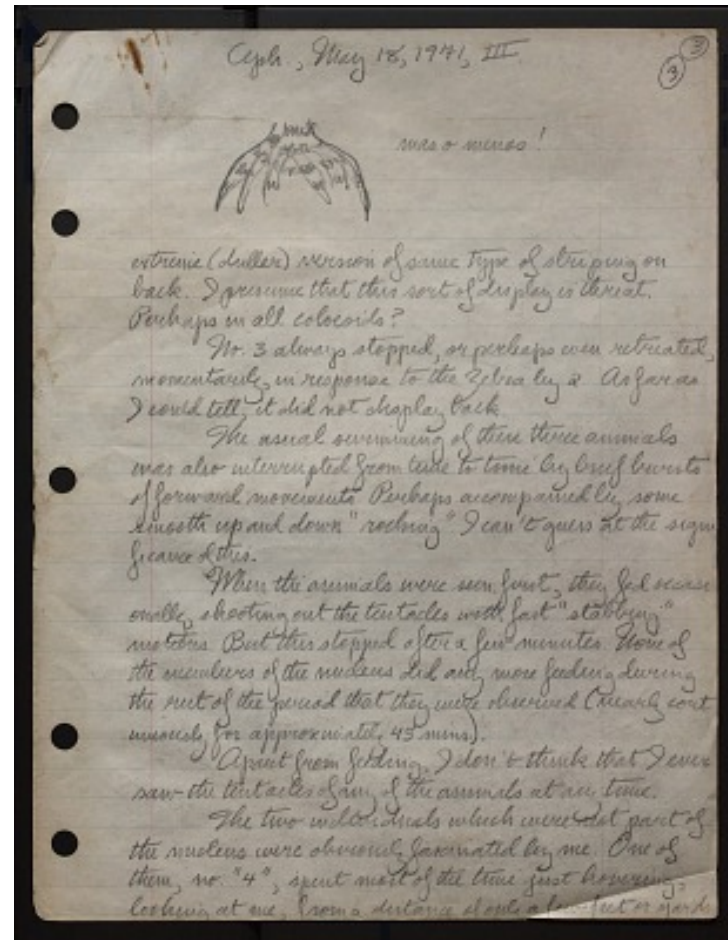 Ceph., May 18, 1971, III.
3
3
mas o menos!
extreme (duller) version of same type of striping on
back. I presume that this sort of display is threat.
Perhaps in all coleoids?
No. 3 always stopped, or perhaps even retreated,
momentarily, in response to the Zebra by 2. As far as
I could tell, it did not display back.
The usual swimming of these three animals
was also interrupted from time to time by brief bursts
of forward movements. Perhaps accompanied by some
smooth up and down "rocking" I can't guess at the signi
ficance of this.
When the animals were seen first, they fed occasi
onally, shooting out the tentacles with fast "stabbing"
motions. But this stopped after a few minutes. None of
the members of the nucleus did any more feeding during
the rest of the period that they were observed (nearly cont
inuously for approximately 45 mins).
Apart from feeding, I don't think that I ever
saw the tentacles of any of the animals at any time.
The two individuals which were not part of
the nucleus were obviously fascinated by me. One of
them, no. "4", spent most of the time just hovering,
looking at me, from a distance of only a few feet or yards